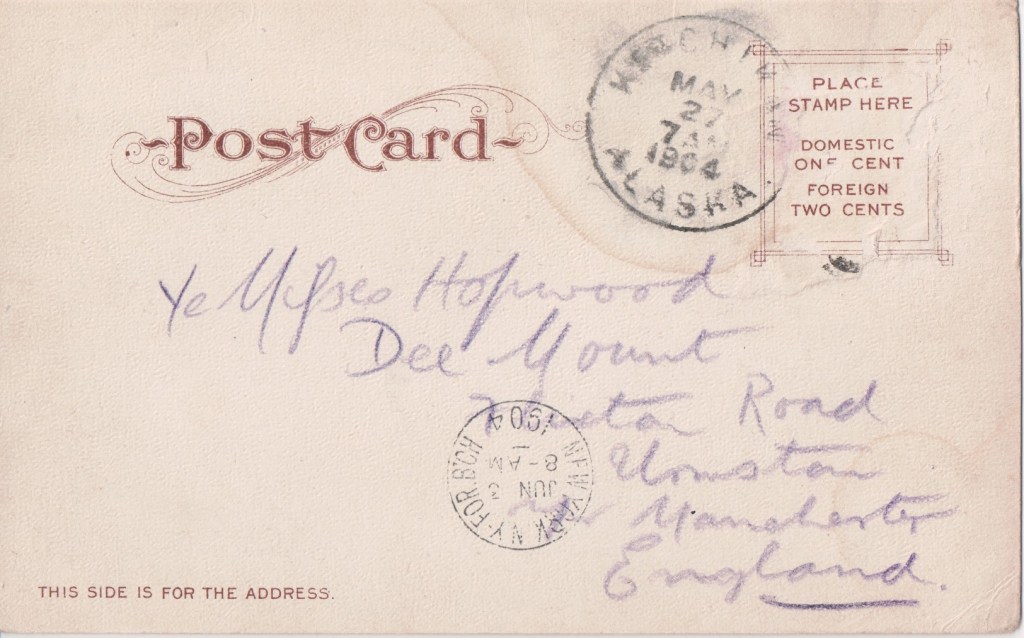 Post Card
KETCHIKAN
MAY
27
7 AM
1904
ALASKA
PLACE
STAMP HERE
DOMESTIC
ONE CENT
FOREIGN
TWO CENTS
Ye Misses Hopwood
Dee Mount
Road
Urmston
Manchester
England.
NEW YORK N.Y. FOR. B'CH
JUN 3
8-AM
1904
THIS SIDE IS FOR THE ADDRESS.